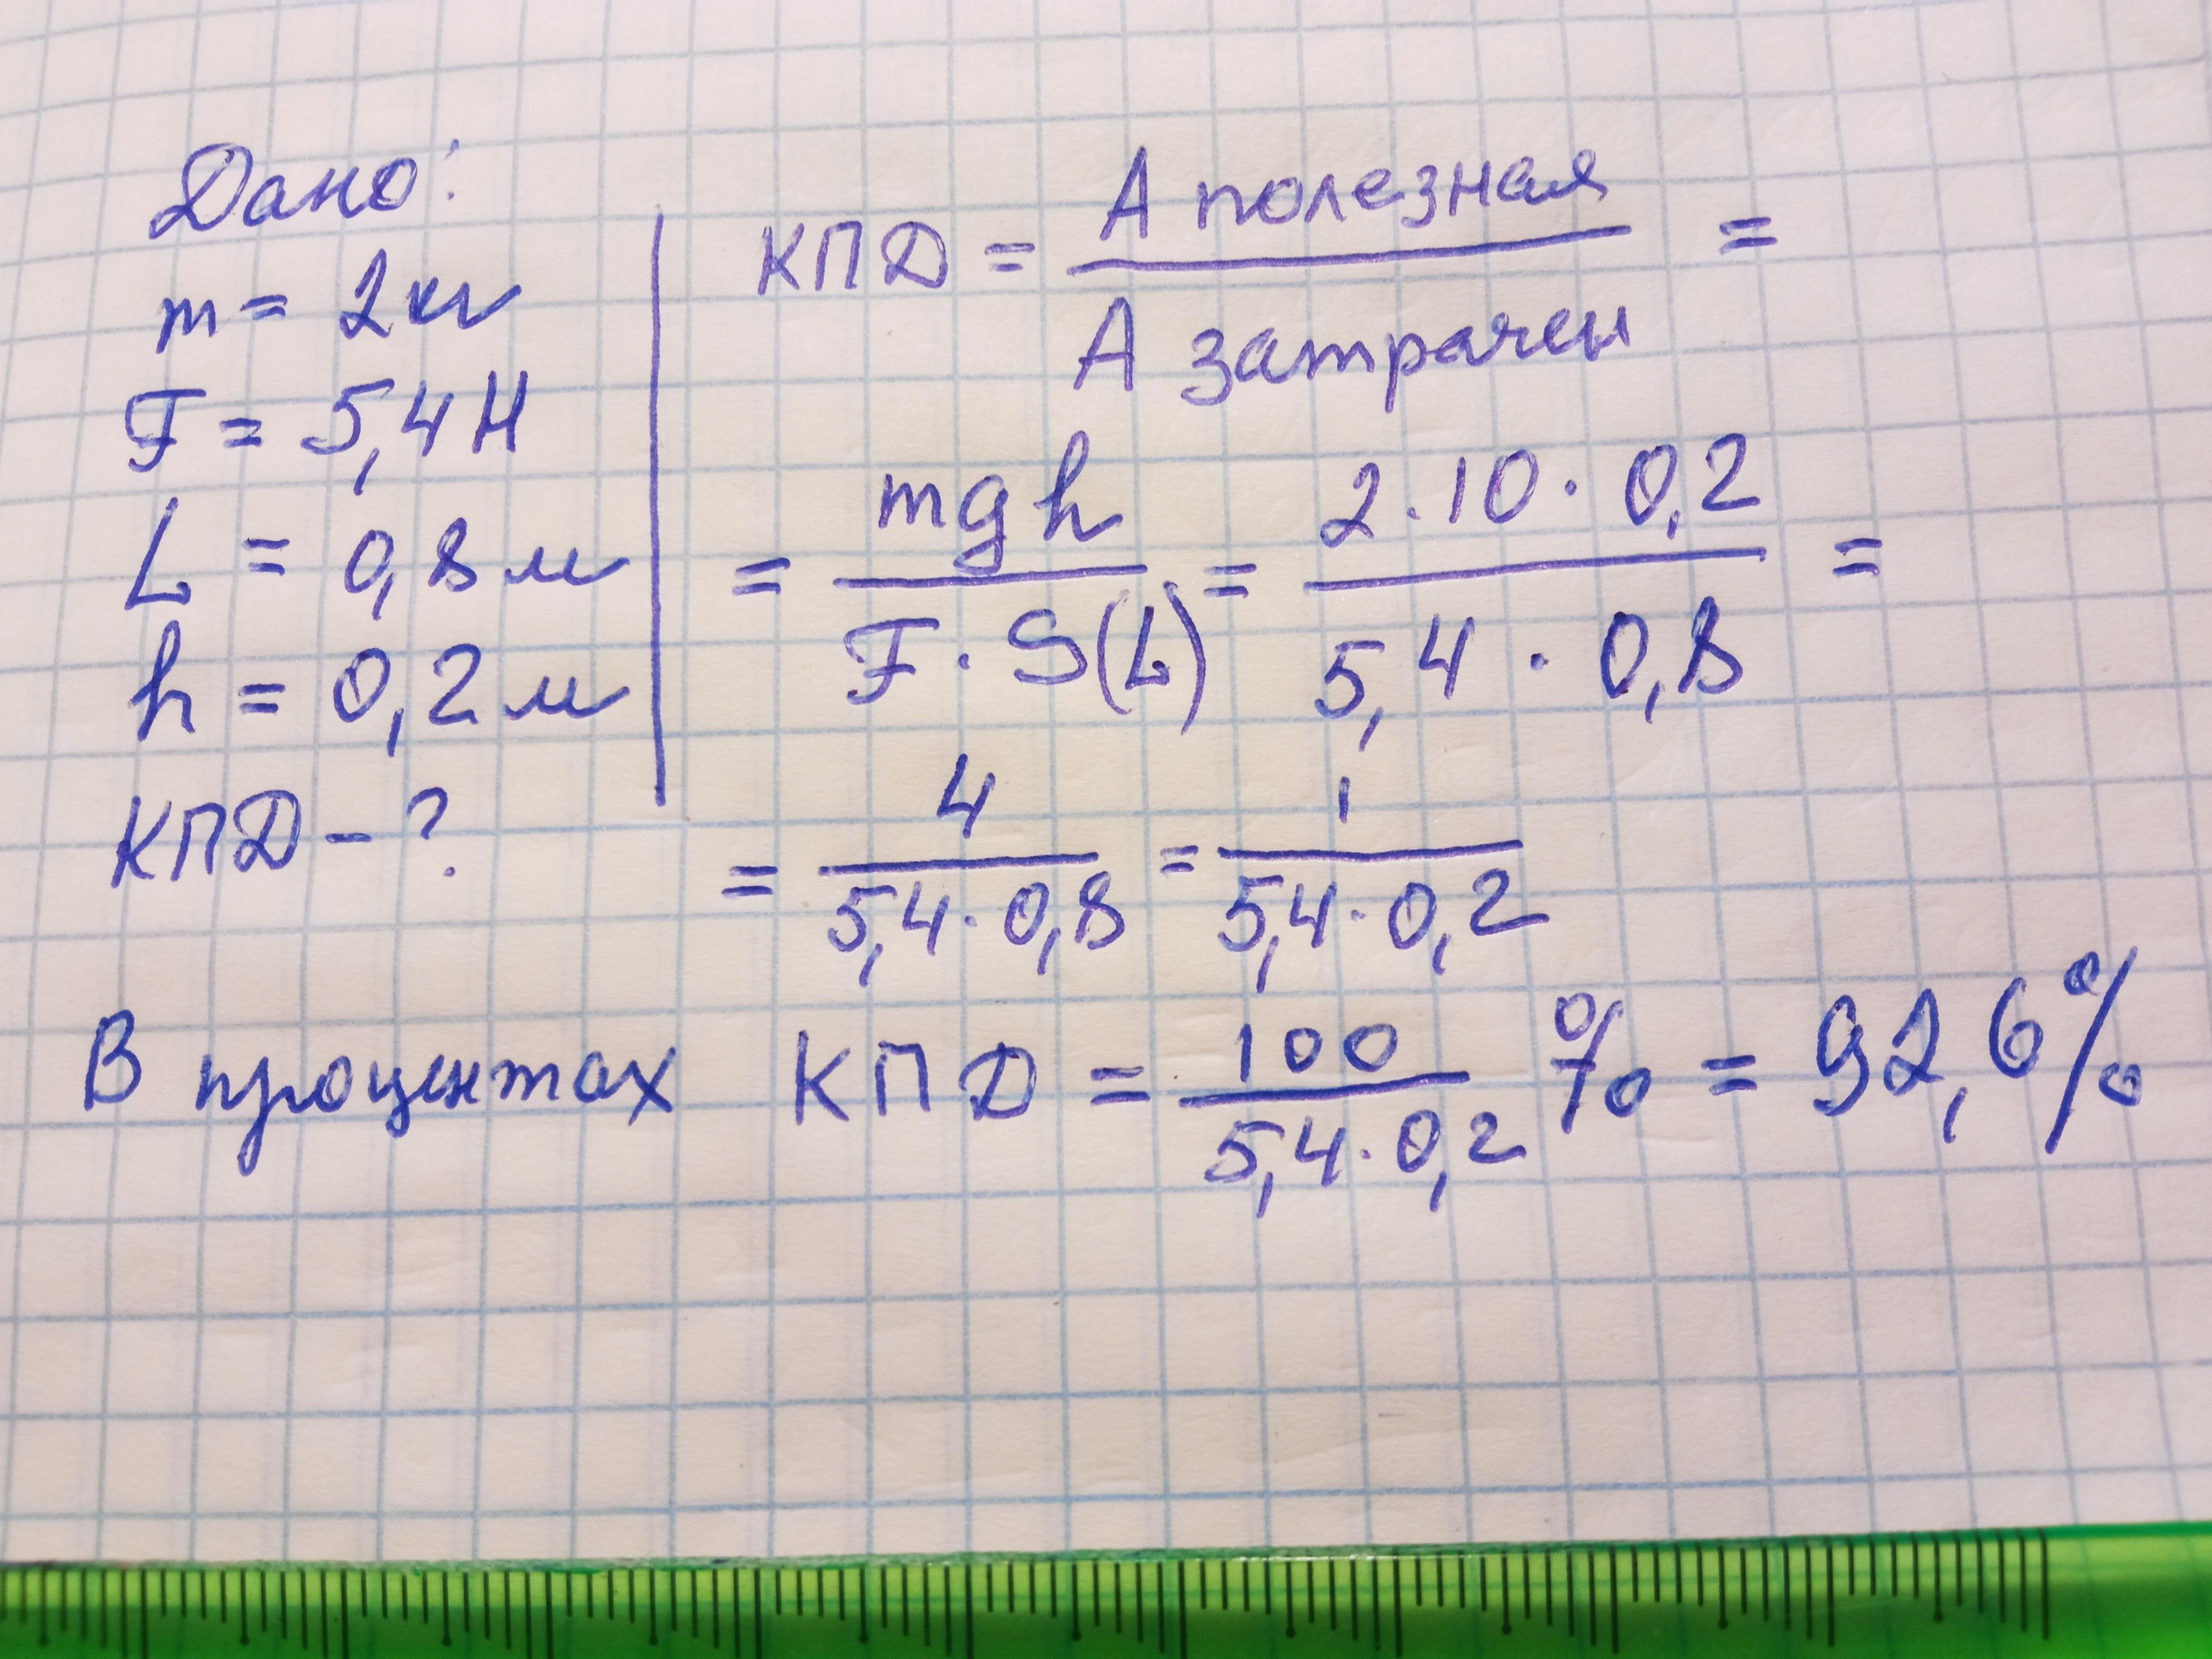 Дано:
m = 2 кг
F = 5,4 Н
L = 0,8 м
h = 0,2 м
КПД - ?
КПД = A полезная / A затрачен =
= mgh / F · S(L) = 2 · 10 · 0,2 / 5,4 · 0,8 =
= 4 / 5,4 · 0,8 = 1 / 5,4 · 0,2
В процентах КПД = 100 / 5,4 · 0,2 % = 92,6 %